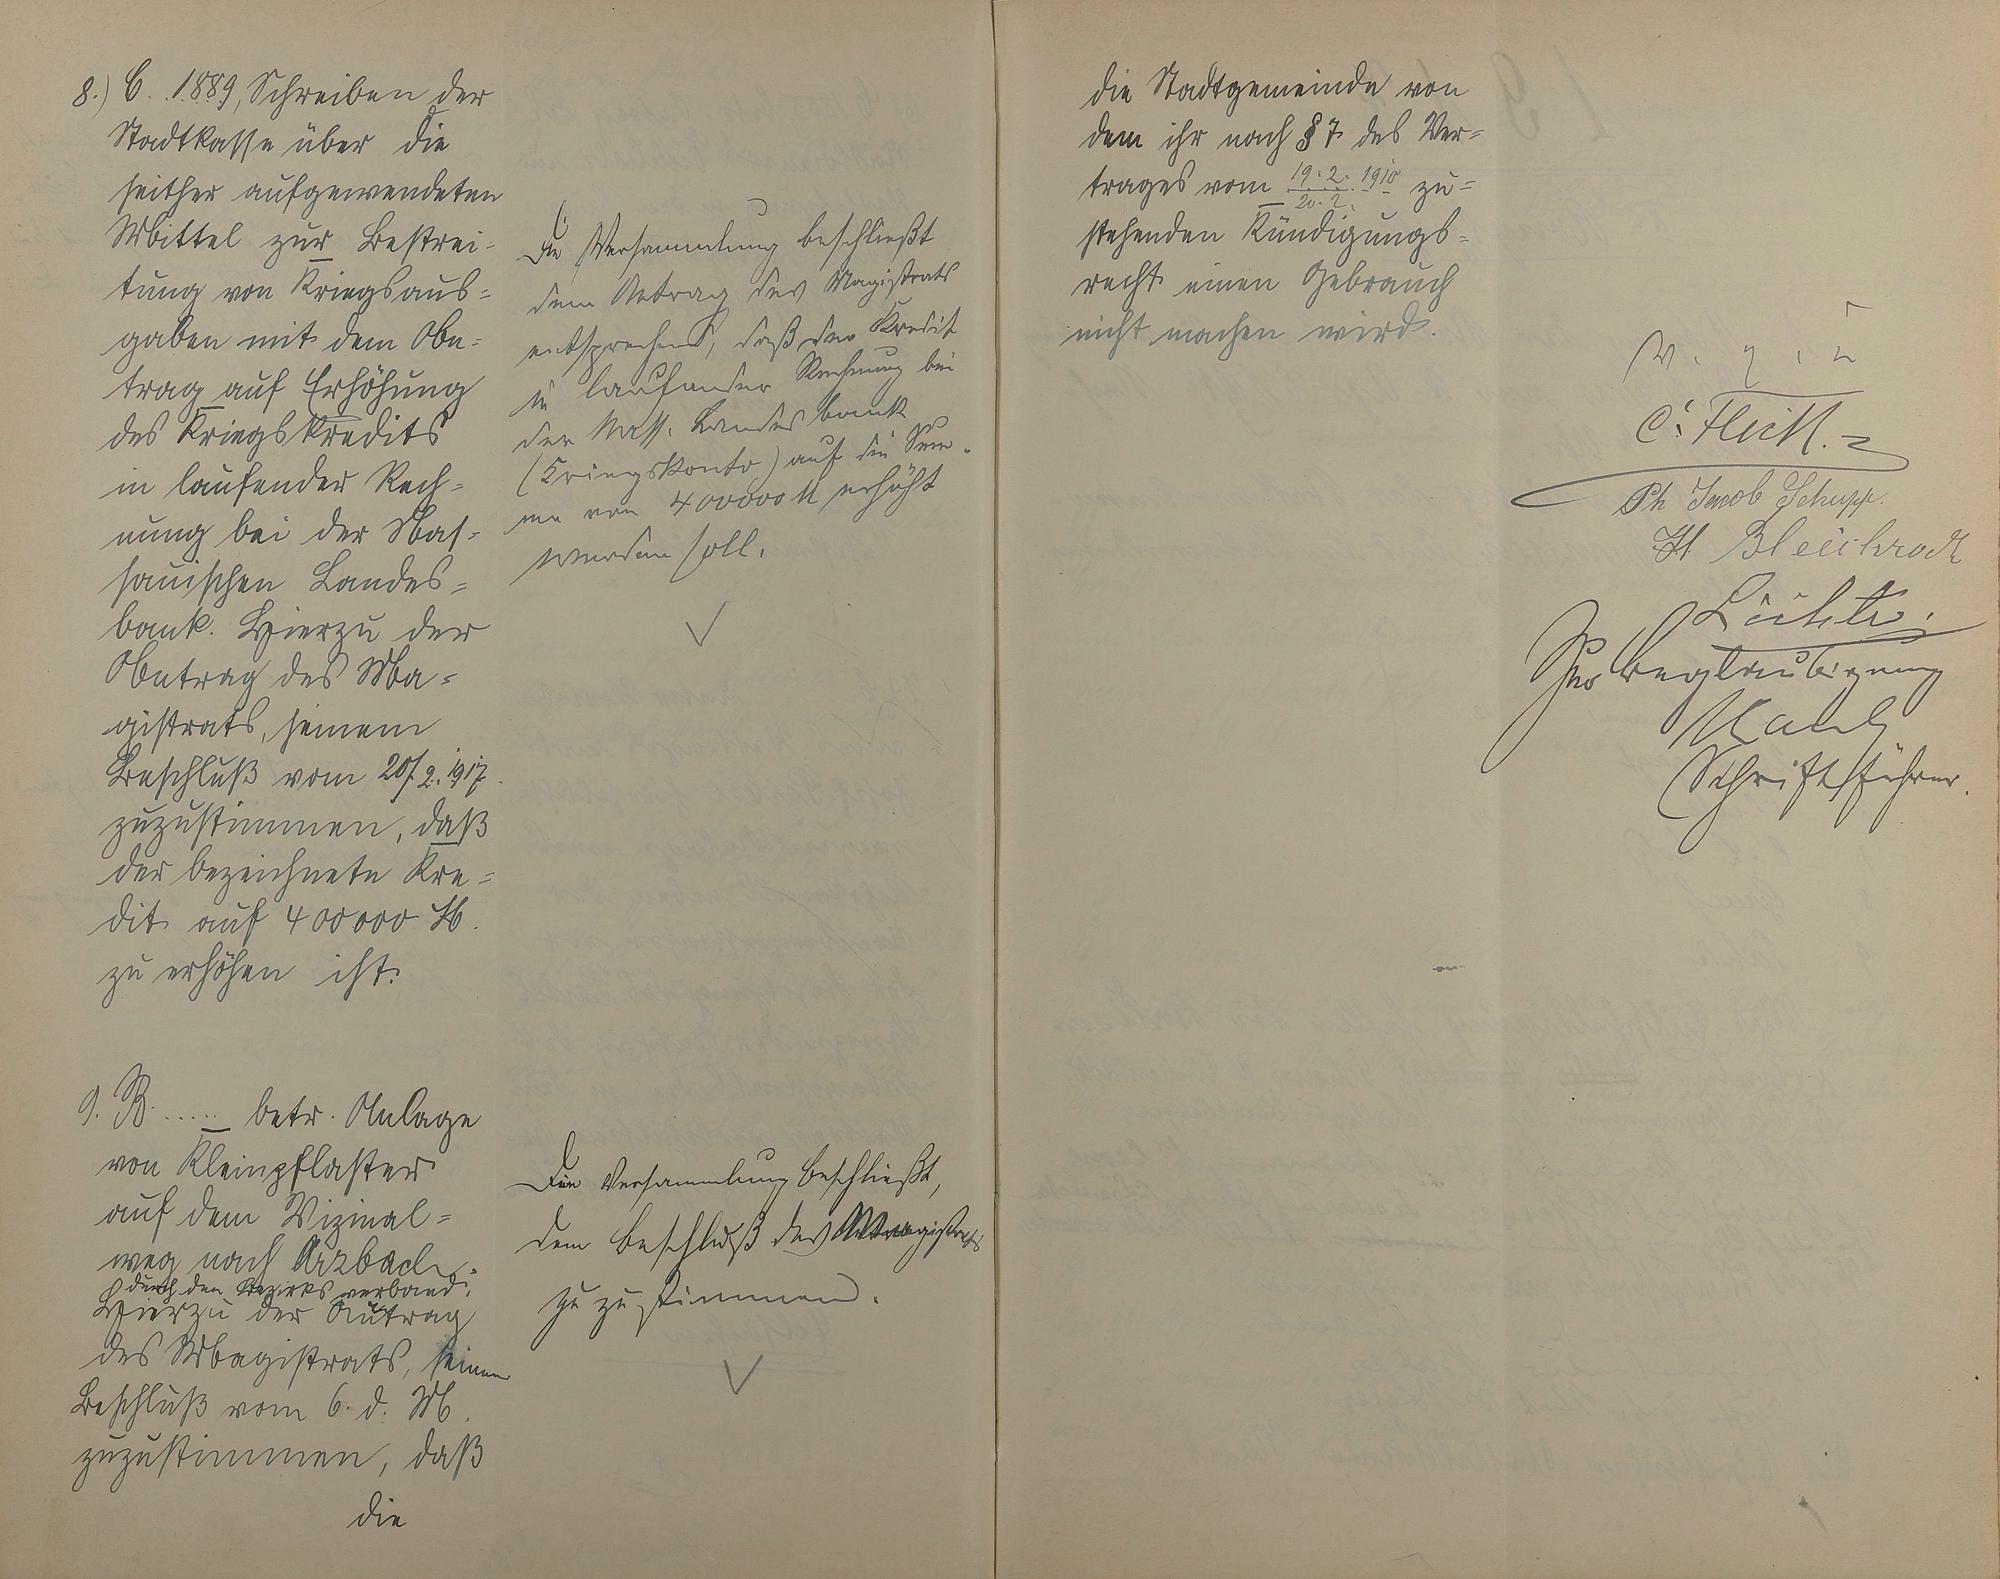 8.) C. 1889, Schreiben der
Stadtkasse über die
seither aufgewendeten
Mittel zur Bestrei-
tung von Kriegsaus-
gaben mit dem An-
trag auf Erhöhung
des Kriegskredits
in laufender Rech-
nung bei der Nas-
sauischen Landes-
bank. Hierzu der
Antrag des Ma-
gistrats, seinem
Beschluß vom 20/2. 1917
zuzustimmen, daß
der bezeichnete Kre-
dit auf 400000 M.
zu erhöhen ist.
Die Versammlung beschließt
dem Antrag des Magistrats
entsprechend, daß der Kredit
in laufender Rechnung bei
der Nass. Landesbank
(Kriegskonto) auf die Sum-
me von 400000 M erhöht
werden soll.
9. B. ..... betr. Anlage
von Kleinpflaster
auf dem Vizinal-
weg nach Arzbach
durch den Bezirksverband.
Hierzu der Antrag
des Magistrats, seinem
Beschluß vom 6. d. M.
zuzustimmen, daß
die
Die Versammlung beschließt,
dem Beschluß des Magistrats
zuzustimmen.
die Stadtgemeinde von
dem ihr nach § 7 des Ver-
trages vom 19.2. 1910 zu-
20.2.
stehenden Kündigungs-
recht einen Gebrauch
nicht machen wird.
v. g. u.
Ph Jacob Schupp.
H Bleichrodt
Zur Beglaubigung
Schriftführer.